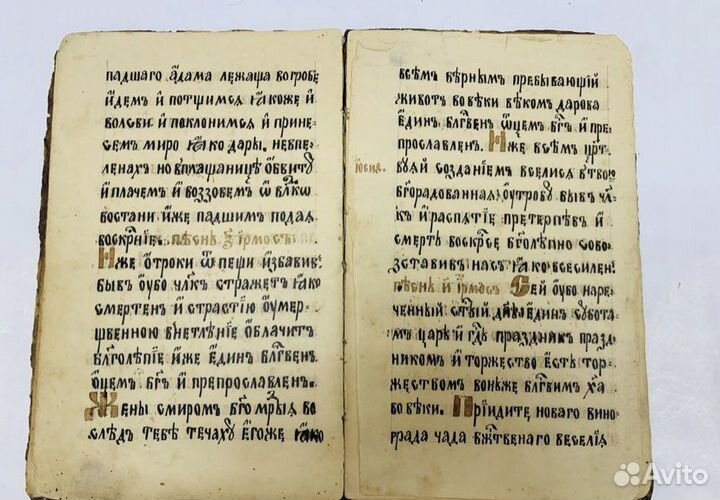 падшаго а҆дама лежаща во гробѣ
и҆демъ и҆ потщимсѧ ꙗ҆коже и҆
волсви и҆ поклонимсѧ и҆ прине-
семъ миро ꙗ҆ко дары. не въ пе
ленахъ но в плащаницѣ ѻ҆бвитꙋ
и҆ плачемъ и҆ воззовемъ ѽ влⷣко
востани и҆же падшимъ подаѧ
воскр҃нїе. пѣснь з҃ і҆рмосъ
Иже ѻ҆троки ѿ пещи и҆збавивъ
бывъ ѹ҆бо чл҃къ стражетъ ꙗ҆ко
смертенъ и҆ страстїю ѹ҆мер-
щвеною в нетлѣнїе ѻ҆блачит
бл҃голѣпїе и҆же е҆динъ бл҃гвенъ
ѻ҆ц҃емъ бг҃ъ и҆ препрославленъ.
Жены с миромъ бг҃омꙋ҃дрыѧ во
слѣдъ тебѣ течахꙋ е҆гоже ꙗ҆ко
всѣмъ вѣрнымъ пребывающїй
животъ во вѣки вѣкомъ дарова
е҆динъ бл҃гвенъ ѻ҆ц҃емъ бг҃ъ и҆ пре-
прославленъ. Иже всѣмъ цр҃т
вꙋѧй созданїемъ вселисѧ в твою
і҆ѡсиѧ.
бг҃орадованнаѧ ѹ҆тробꙋ бывъ чл҃
къ и҆ распѧтїе претерпѣвъ и҆
смерть воскр҃се бг҃олѣпно сово-
зставивъ насъ ꙗ҆ко всесиленъ
пѣснь и҃ і҆рмосъ Сей ѹ҆бо наре-
ченный ст҃ый дн҃ь е҆динъ сꙋбота-
мъ царь и҆ гдⷭ҇ь праздникъ празд-
никомъ и҆ торжество е҆сть тор-
жествомъ воньже бл҃гвимъ хр҃а
во вѣки. Прїидите новаго вино-
града чада бж҃твенаго веселїѧ
Avito